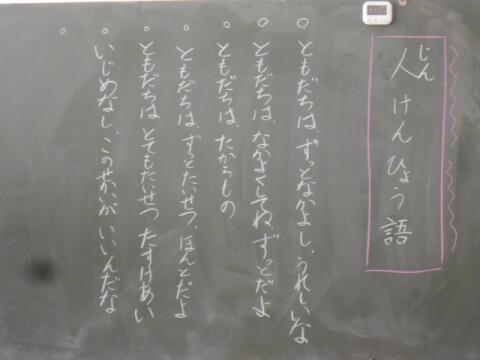 じん
人けんひょう語
○ ともだちは、ずっとなかよし、うれしいな
○ ともだちは、なかよくしてね、ずっとだよ
○ ともだちは、たからもの
○ ともだちは、ずっとたいせつ、ほんとだよ
○ ともだちは とてもたいせつ たすけあい
○ いじめなし、このせかいが いいんだな
○